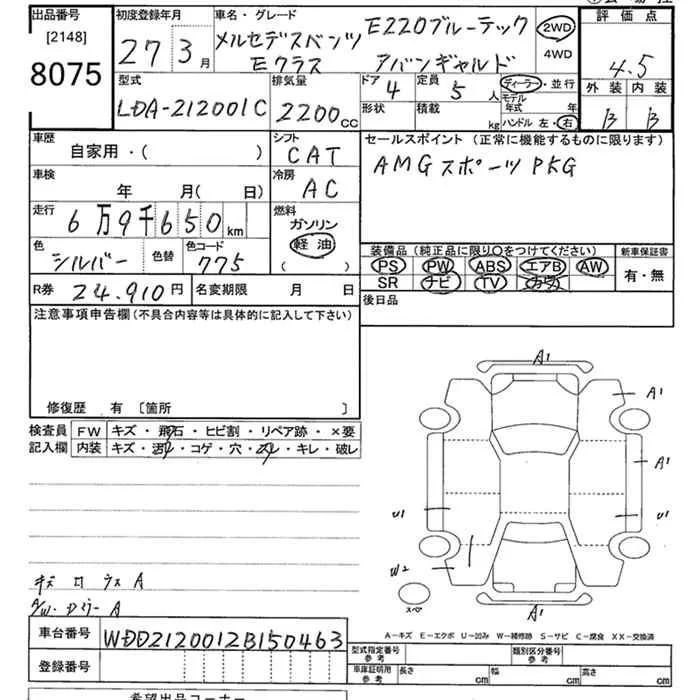 出品番号 初度登録年月 車名・グレード 評価点
[2148]
8075
27年 3月
メルセデスベンツ E220ブルーテック
Eクラス アバンギャルド
2WD
4WD
4.5
型式 排気量 ドア 定員 ディーラー・並行 外装 内装
LDA-212001C 2200cc 4 5人
形状 積載 kg
モデル年式 年
ハンドル 左・右
B B
車歴 シフト セールスポイント (正常に機能するものに限ります)
自家用・( ) CAT AMGスポーツPKG
車検 冷房
年 月(日) AC
走行 燃料
6万9千650km ガソリン
軽油
( )
色 色替 色コード
シルバー 775
装備品 (純正品に限り○をつけてください) 新車保証書
PS PW ABS エアB AW 有・無
SR ナビ TV
R券 24,910円 名変期限 月 日 後日品
注意事項申告欄 (不具合内容等は具体的に記入して下さい)
修復歴 有 〔箇所 〕
検査員 FW キズ・飛石・ヒビ割・リペア跡・×要
記入欄 内装 キズ・・コゲ・穴・・キレ・破レ
A1
A1
A1
U1 U1
W2
スペア
A1
A
A
A-キズ E-エクボ U-凹み W-補修跡 S-サビ C-腐食 XX-交換済
車台番号 WDD2120012B150463
登録番号
型式指定番号 参考 類別区分番号 参考
車庫証明用 参考 長さ cm 幅 cm 高さ cm
希望出品コーナー